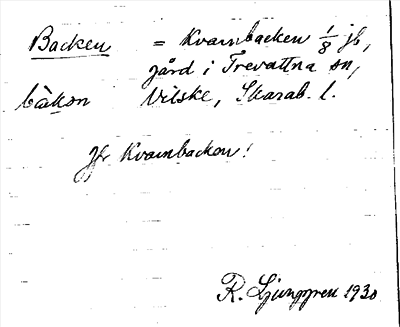 Backen = Kvarnbacken 1/8 jb,
gård i Trevattna sn,
bàkɔn Vilske, Skarab. l.
Jfr Kvarnbacken!
R. Ljunggren 1930